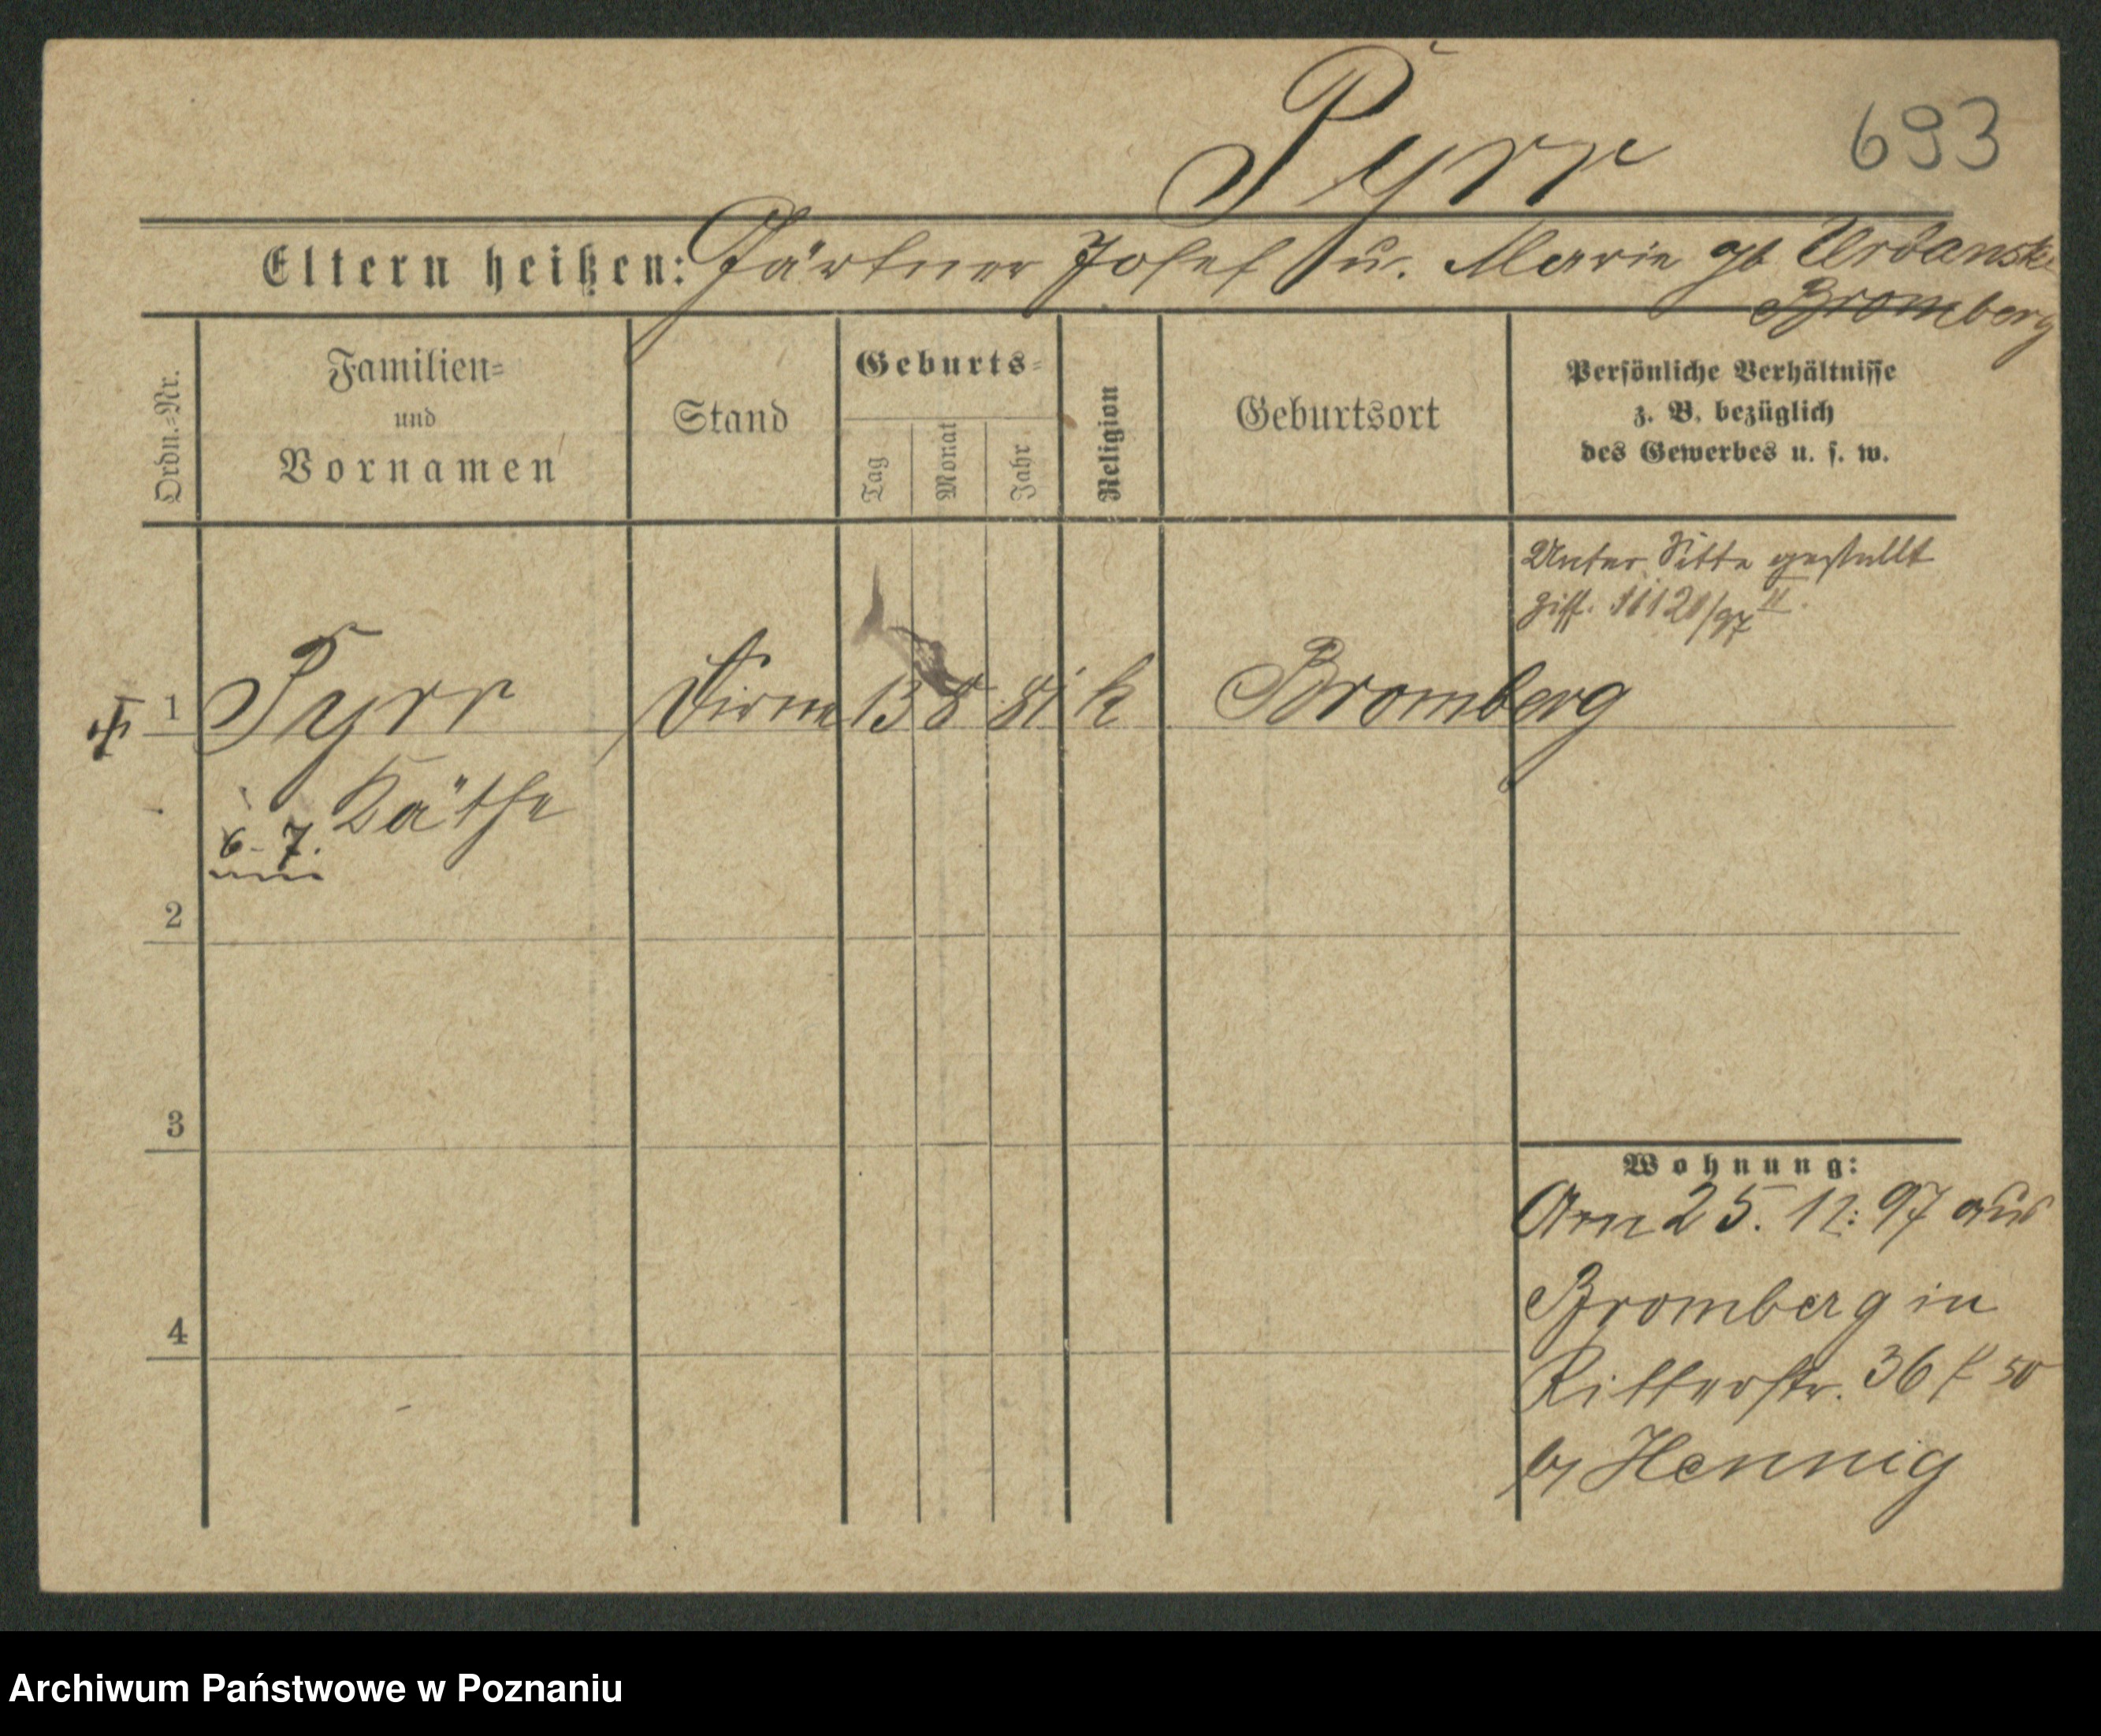 Pyrr 693
Eltern heißen: Gärtner Josef u. Marie gb Urbanski
Bromberg
Ordn.=Nr.
Familien=
und
Vornamen
Stand
Geburts=
Tag
Monat
Jahr
Religion
Geburtsort
Persönliche Verhältnisse
z. B. bezüglich
des Gewerbes u. s. w.
Unter Sitte gestellt
11121/97 II.
1 Pyrr Dirne 13 8 81 k Bromberg
Käthe
6-7.
2
3
4
Wohnung:
Am 25. 11. 97 aus
Bromberg in
Ritterstr. 36
b/ Hennig
Archiwum Państwowe w Poznaniu